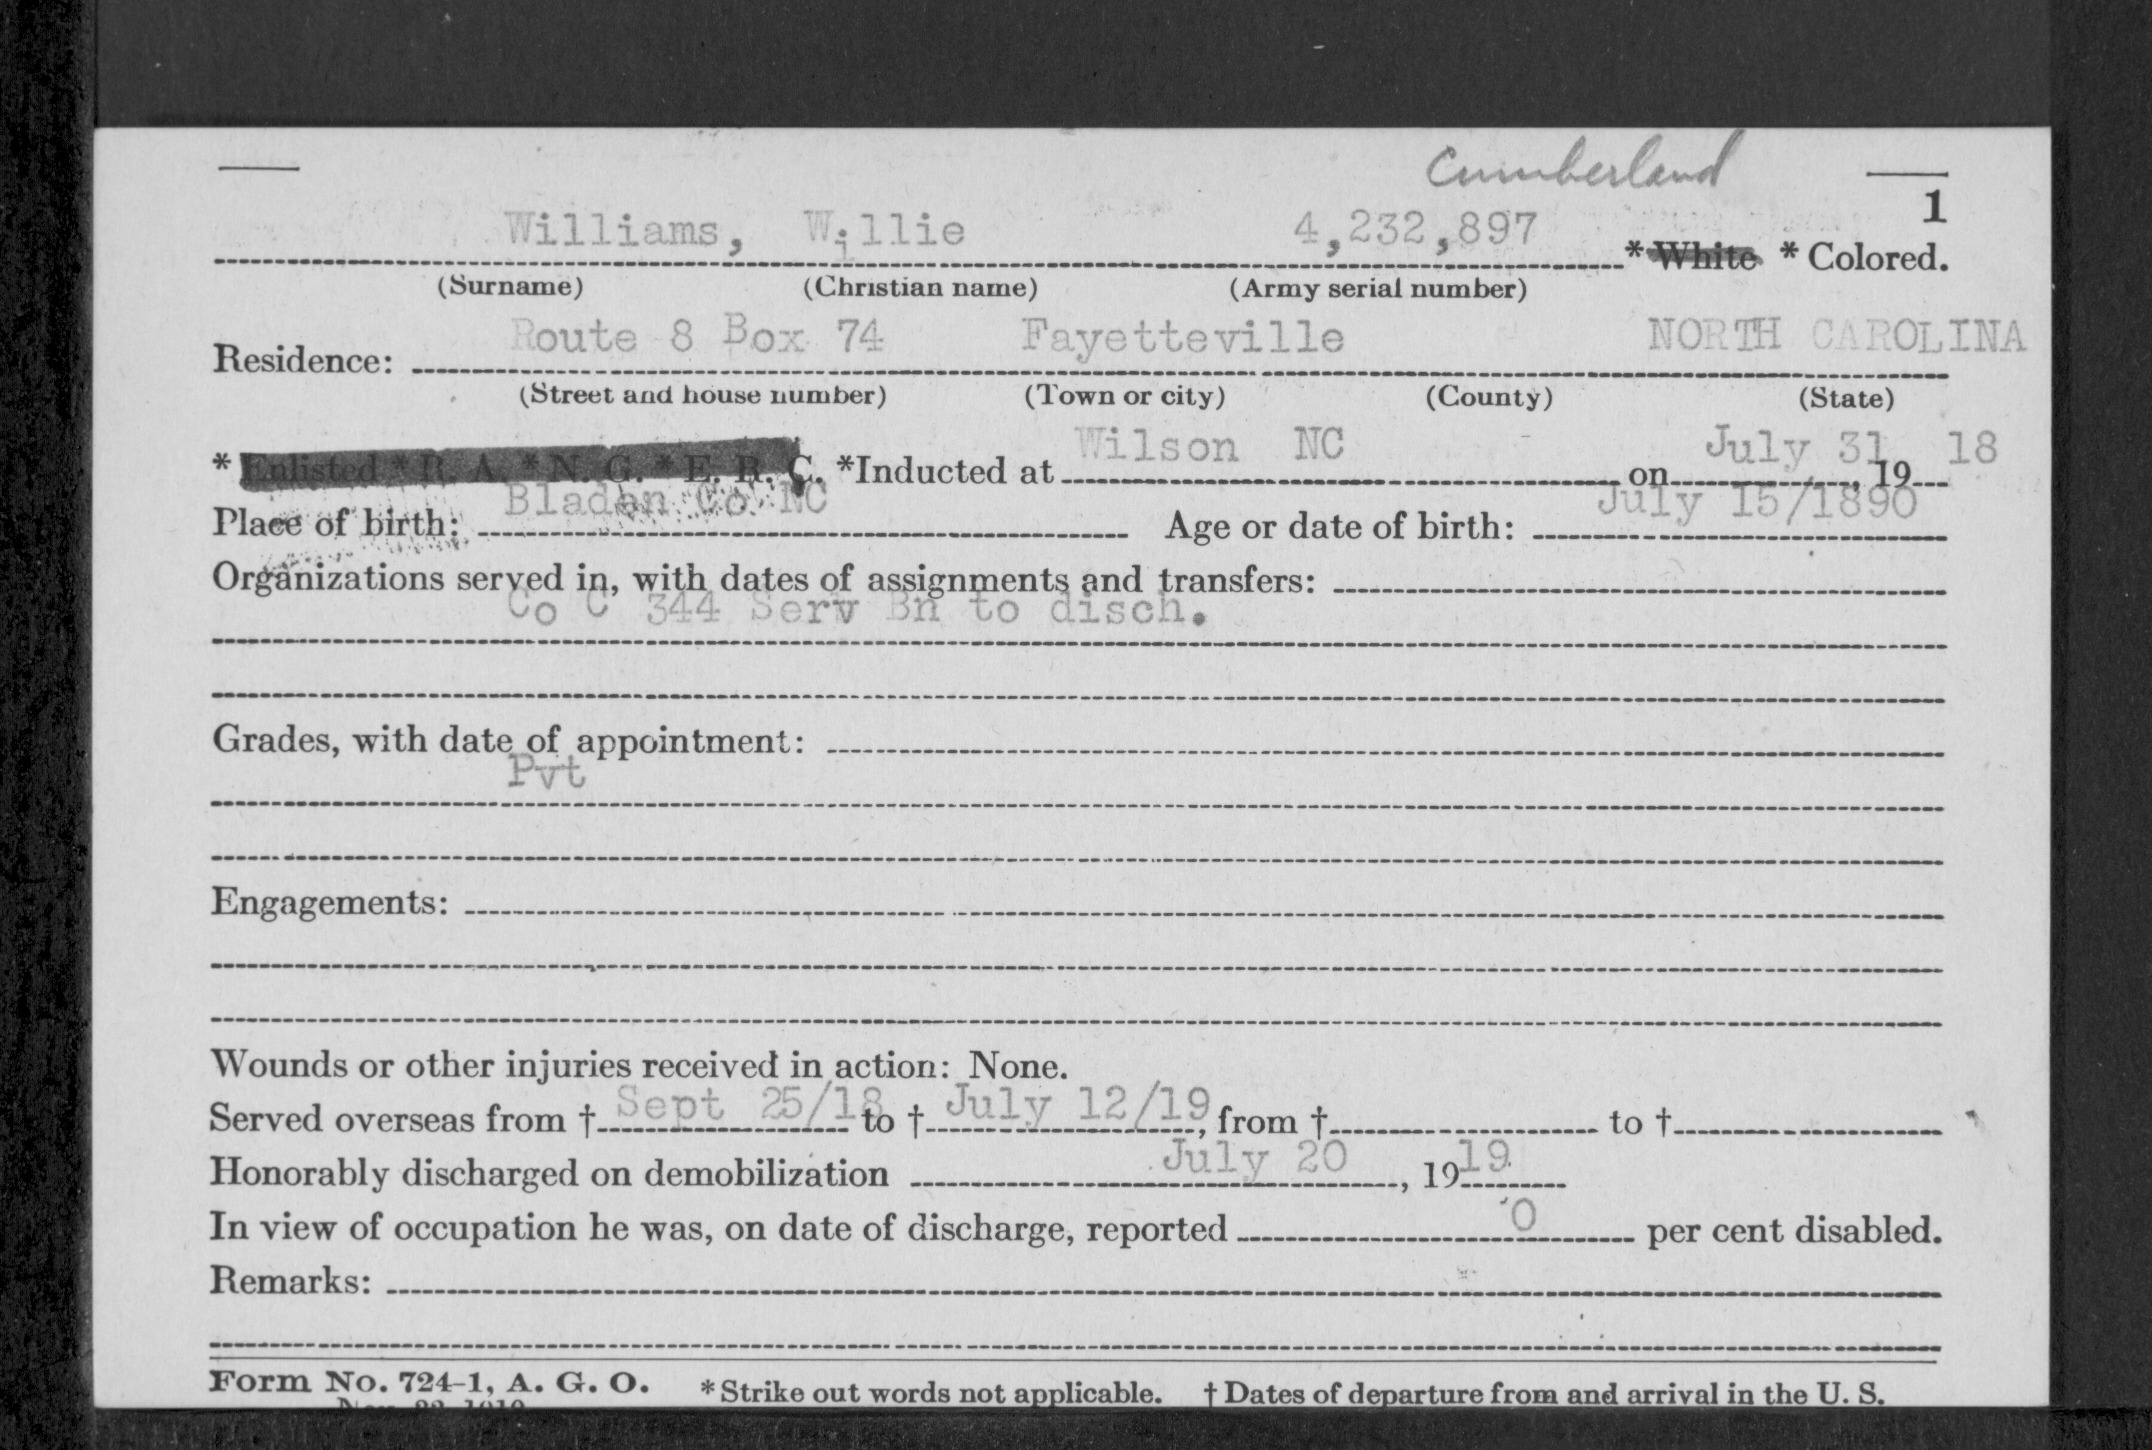 Cumberland
1
Williams, Willie 4,232,897 * White * Colored.
(Surname) (Christian name) (Army serial number)
Residence: Route 8 Box 74 Fayetteville NORTH CAROLINA
(Street and house number) (Town or city) (County) (State)
* Enlisted * R. A. * N. G. * E. R. C. *Inducted at Wilson NC on July 31, 1918
Place of birth: Bladen Co NC Age or date of birth: July 15/1890
Organizations served in, with dates of assignments and transfers:
Co C 344 Serv Bn to disch.
Grades, with date of appointment:
Pvt
Engagements:
Wounds or other injuries received in action: None.
Served overseas from † Sept 25/18 to † July 12/19, from † to †
Honorably discharged on demobilization July 20, 1919
In view of occupation he was, on date of discharge, reported 0 per cent disabled.
Remarks:
Form No. 724-1, A. G. O. * Strike out words not applicable. † Dates of departure from and arrival in the U. S.